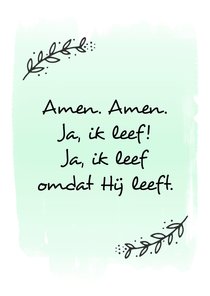 Amen. Amen.
Ja, ik leef!
Ja, ik leef
omdat Hij leeft.